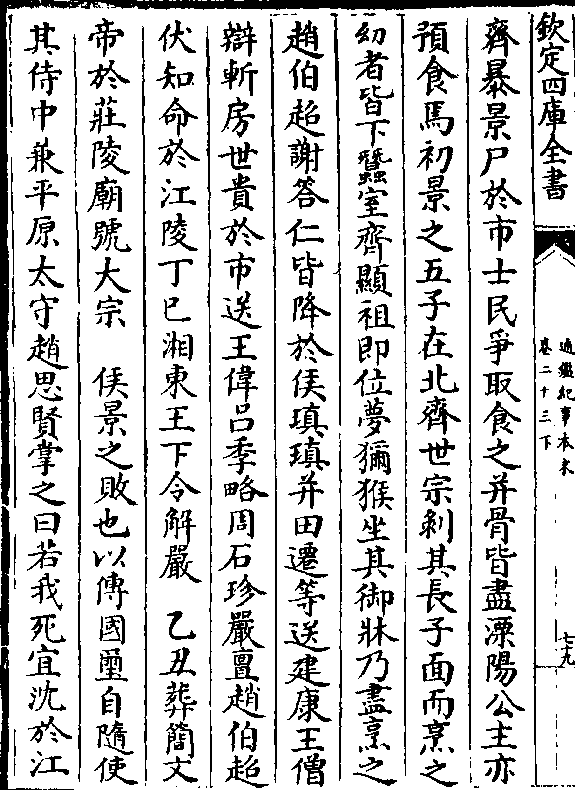 欽定四庫全書
通鑑紀事本末
卷二十三下
七九
齊暴景尸於市士民爭取食之并骨皆盡溧陽公主亦
預食焉初景之五子在北齊世宗剥其長子面而烹之
幼者皆下蠶室齊顯祖即位夢獼猴坐其御牀乃盡烹之
趙伯超謝答仁皆降於侯瑱瑱并田遷等送建康王僧
辯斬房世貴於市送王偉吕季略周石珍嚴亶趙伯超
伏知命於江陵丁巳湘東王下令解嚴 乙丑葬簡文
帝於莊陵廟號大宗 侯景之敗也以傳國璽自隨使
其侍中兼平原太守趙思賢掌之曰若我死宜沈於江